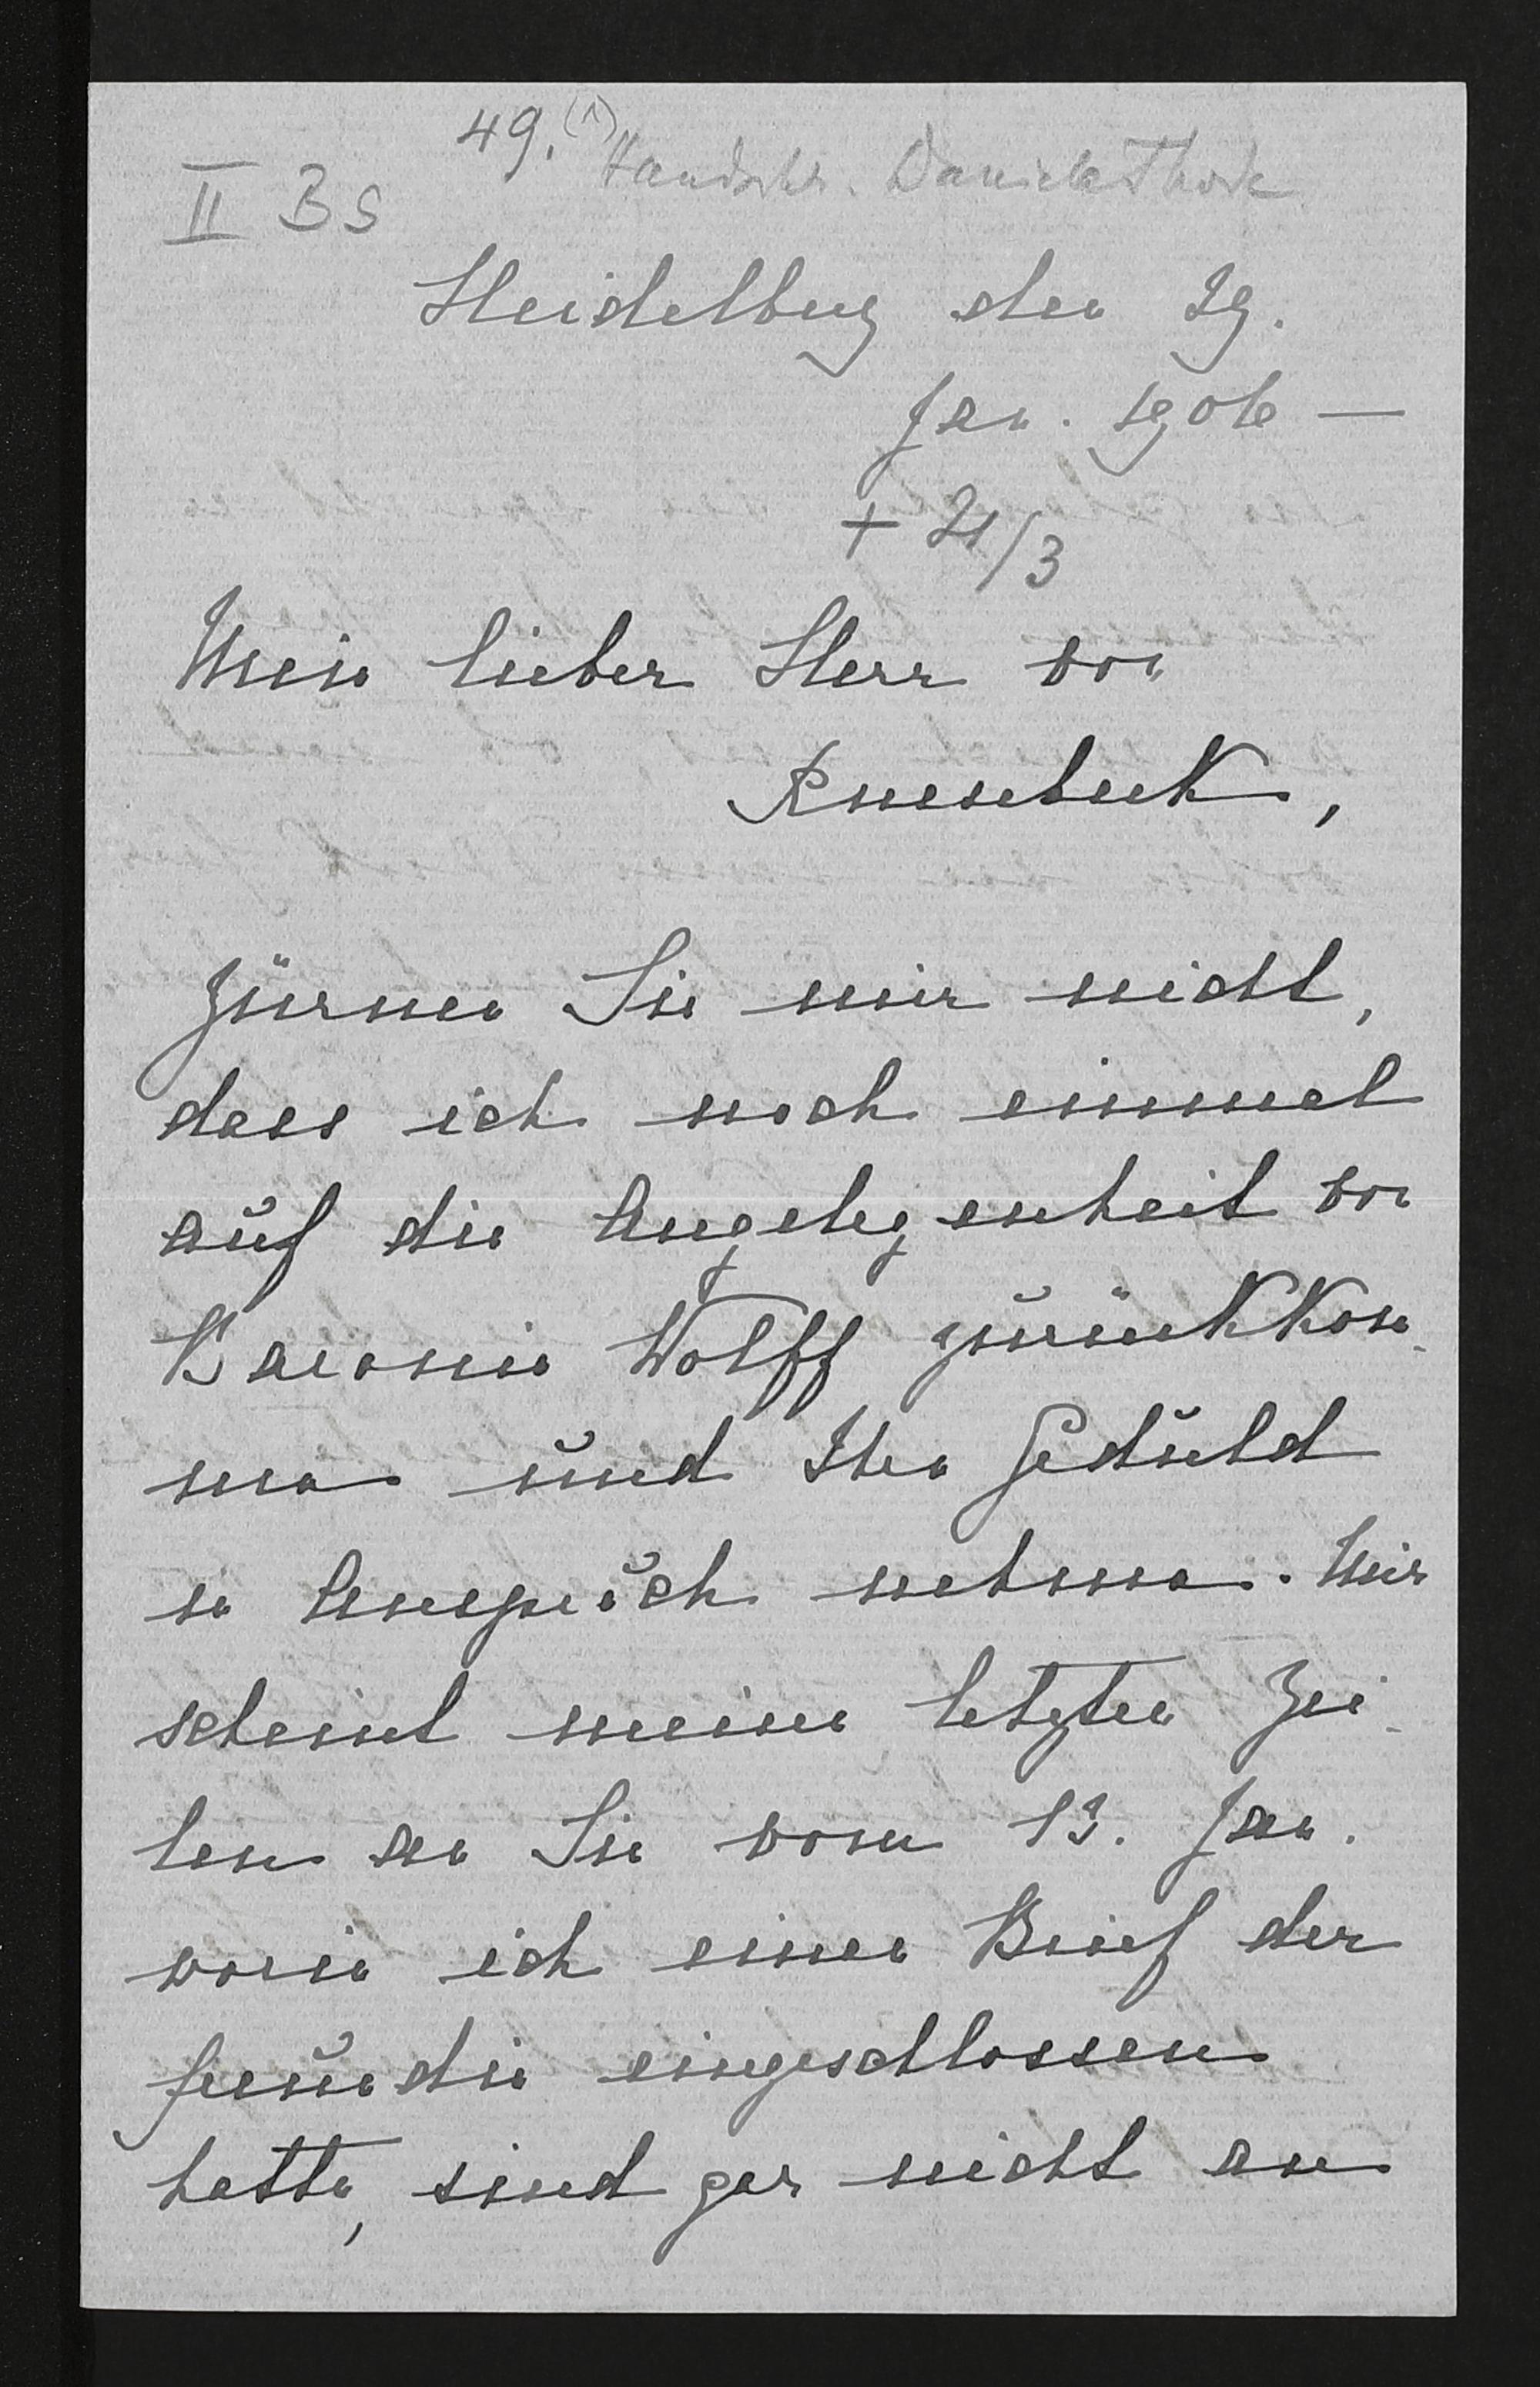 49. (1)
Handschr. Daniela Thode
II Bs
Heidelberg den 29.
Jan. 1906 —
+ 21/3
Mein lieber Herr von
Knesebeck,
Zürnen Sie mir nicht,
dass ich noch einmal
auf die Angelegenheit von
Baronin Wolff zurückkom-
men und Ihre Geduld
in Anspruch nehme. Mir
scheint meine letzten Zei-
len an Sie vom 13. Jan.
worin ich einen Brief der
Freundin eingeschlossen
hatte, sind gar nicht an